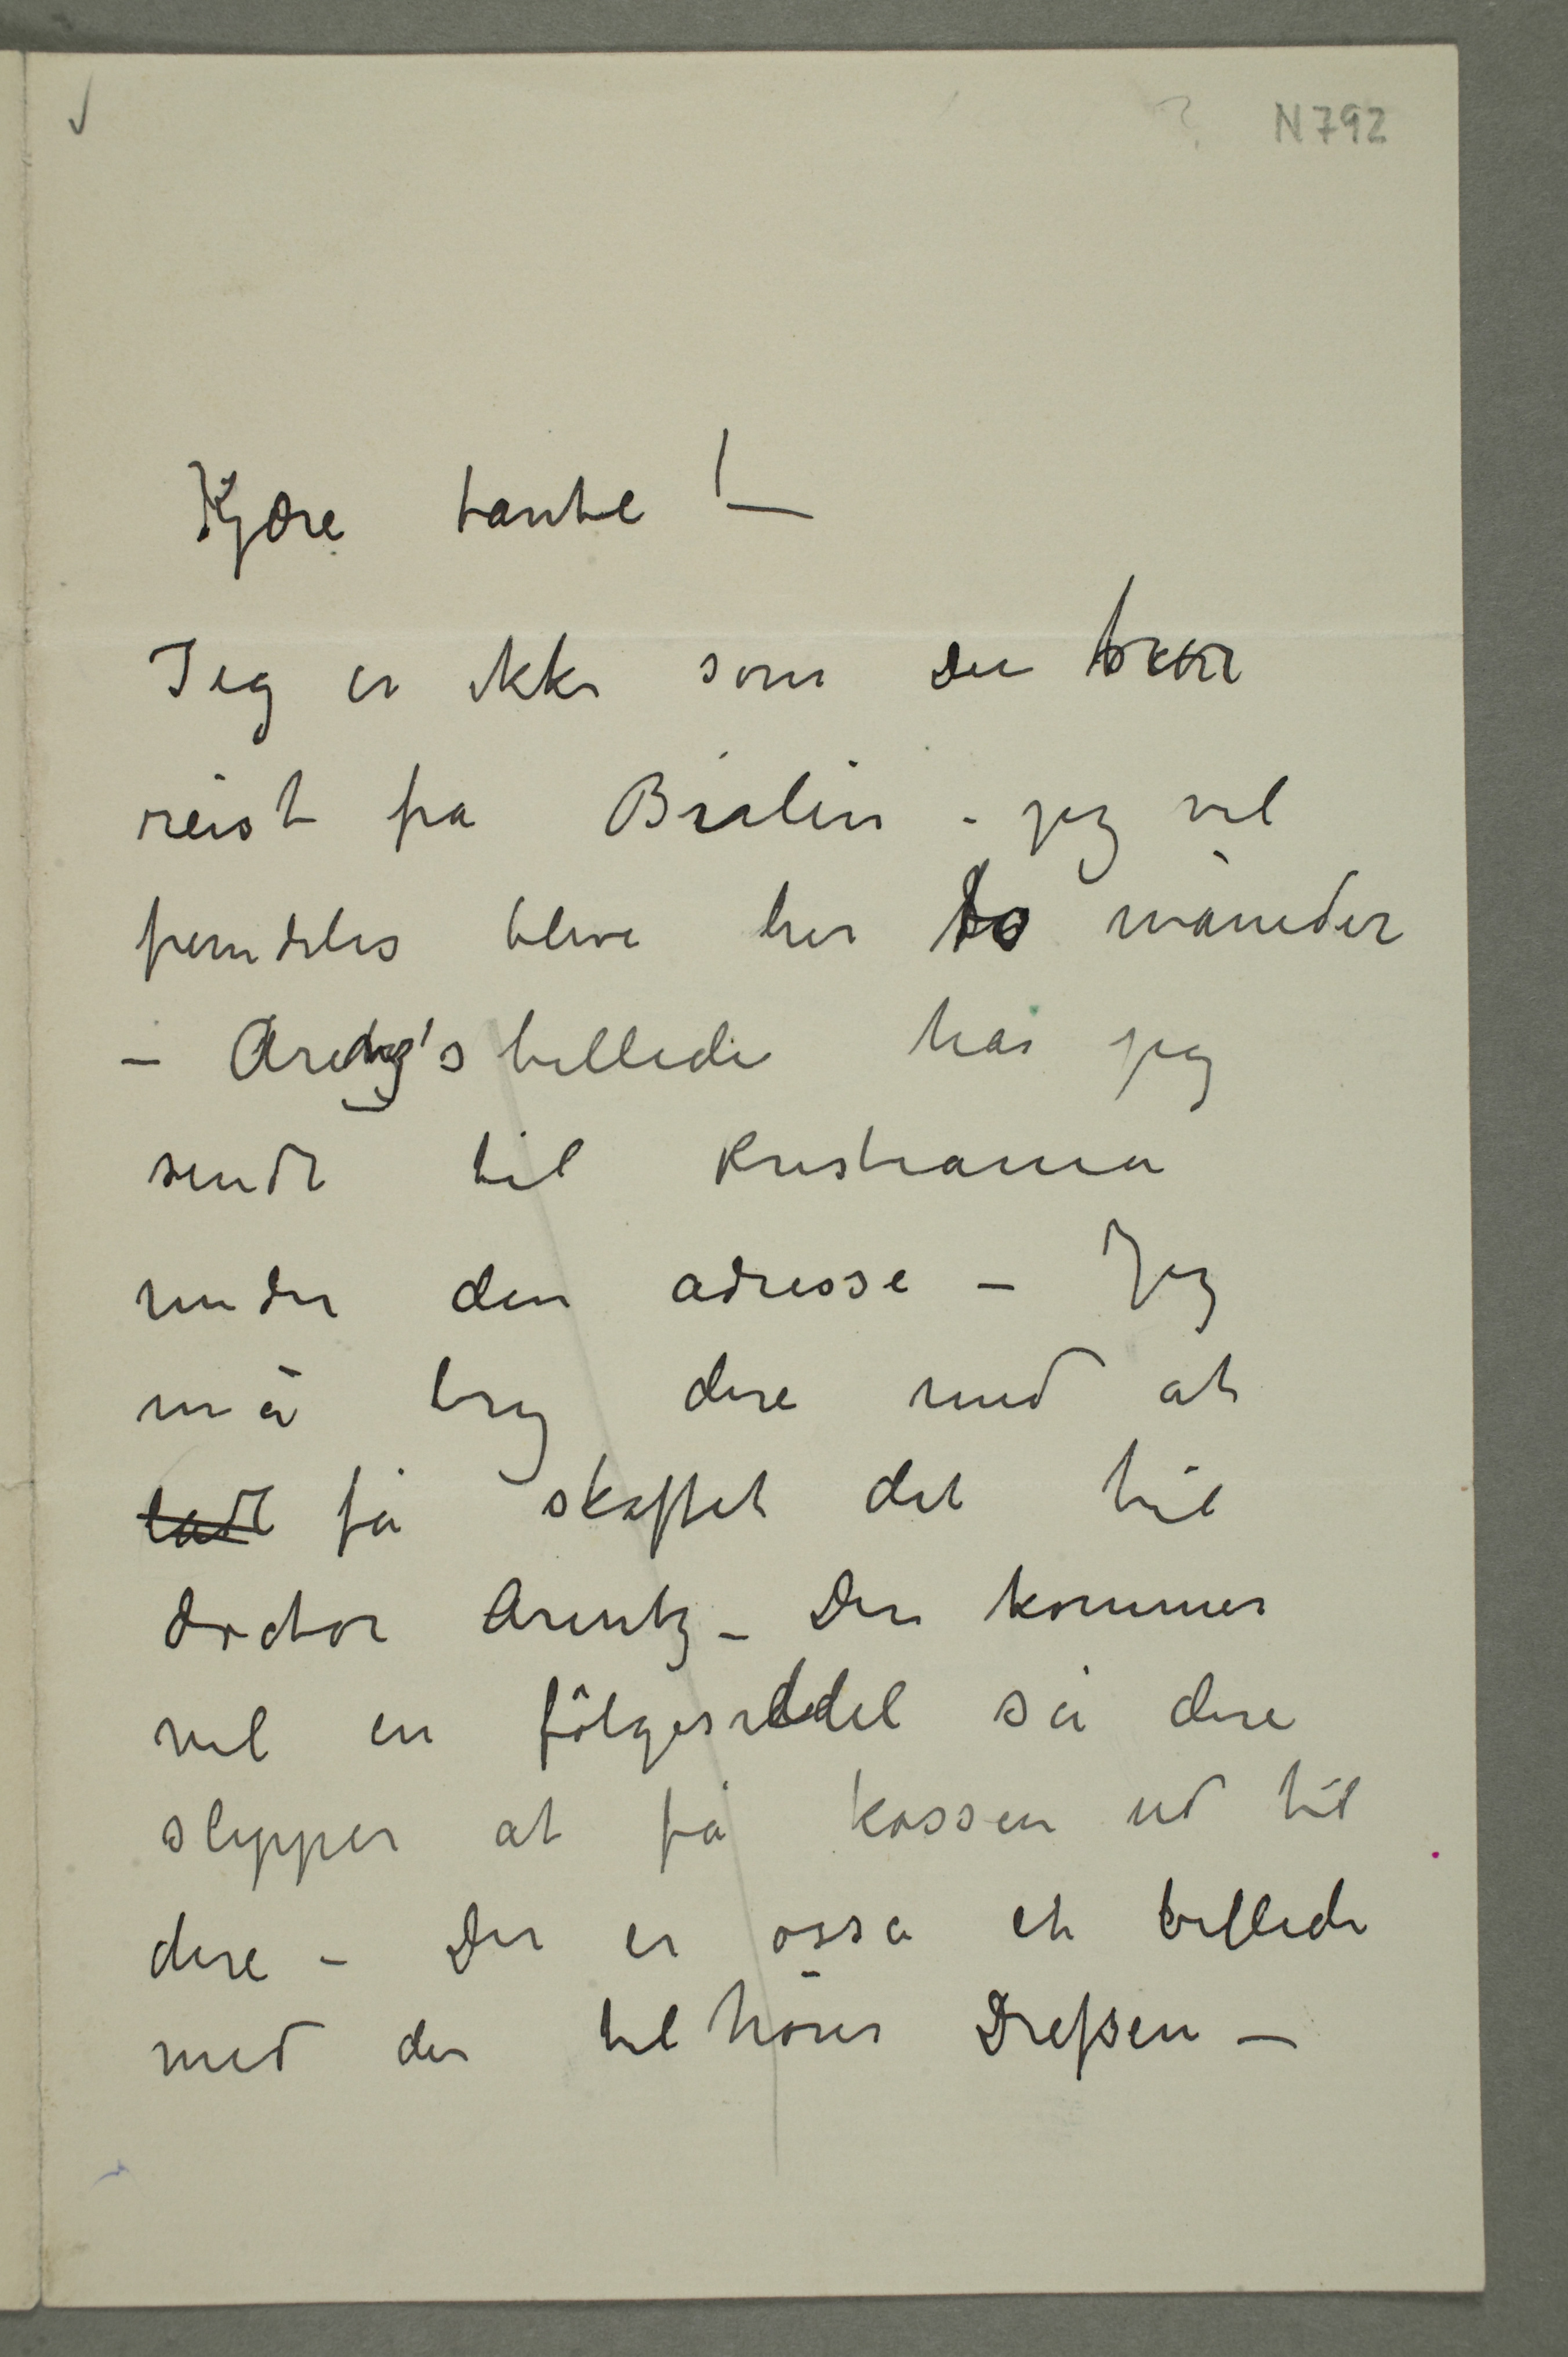 N 792
Kjære tante! —
Jeg er ikke som Du tror
reist fra Berlin - jeg vil
fremdeles blive her to måneder
— Arentz's billede har jeg
sendt til Kristiania
under din adresse — Jeg
må bry dere med at
ladt få skaffet det til
doctor Arentz — Der kommer
vel en følgeseddel så dere
slipper at få kassen ud til
dere — Der er osså et billede
med der tilhører Dreßen —